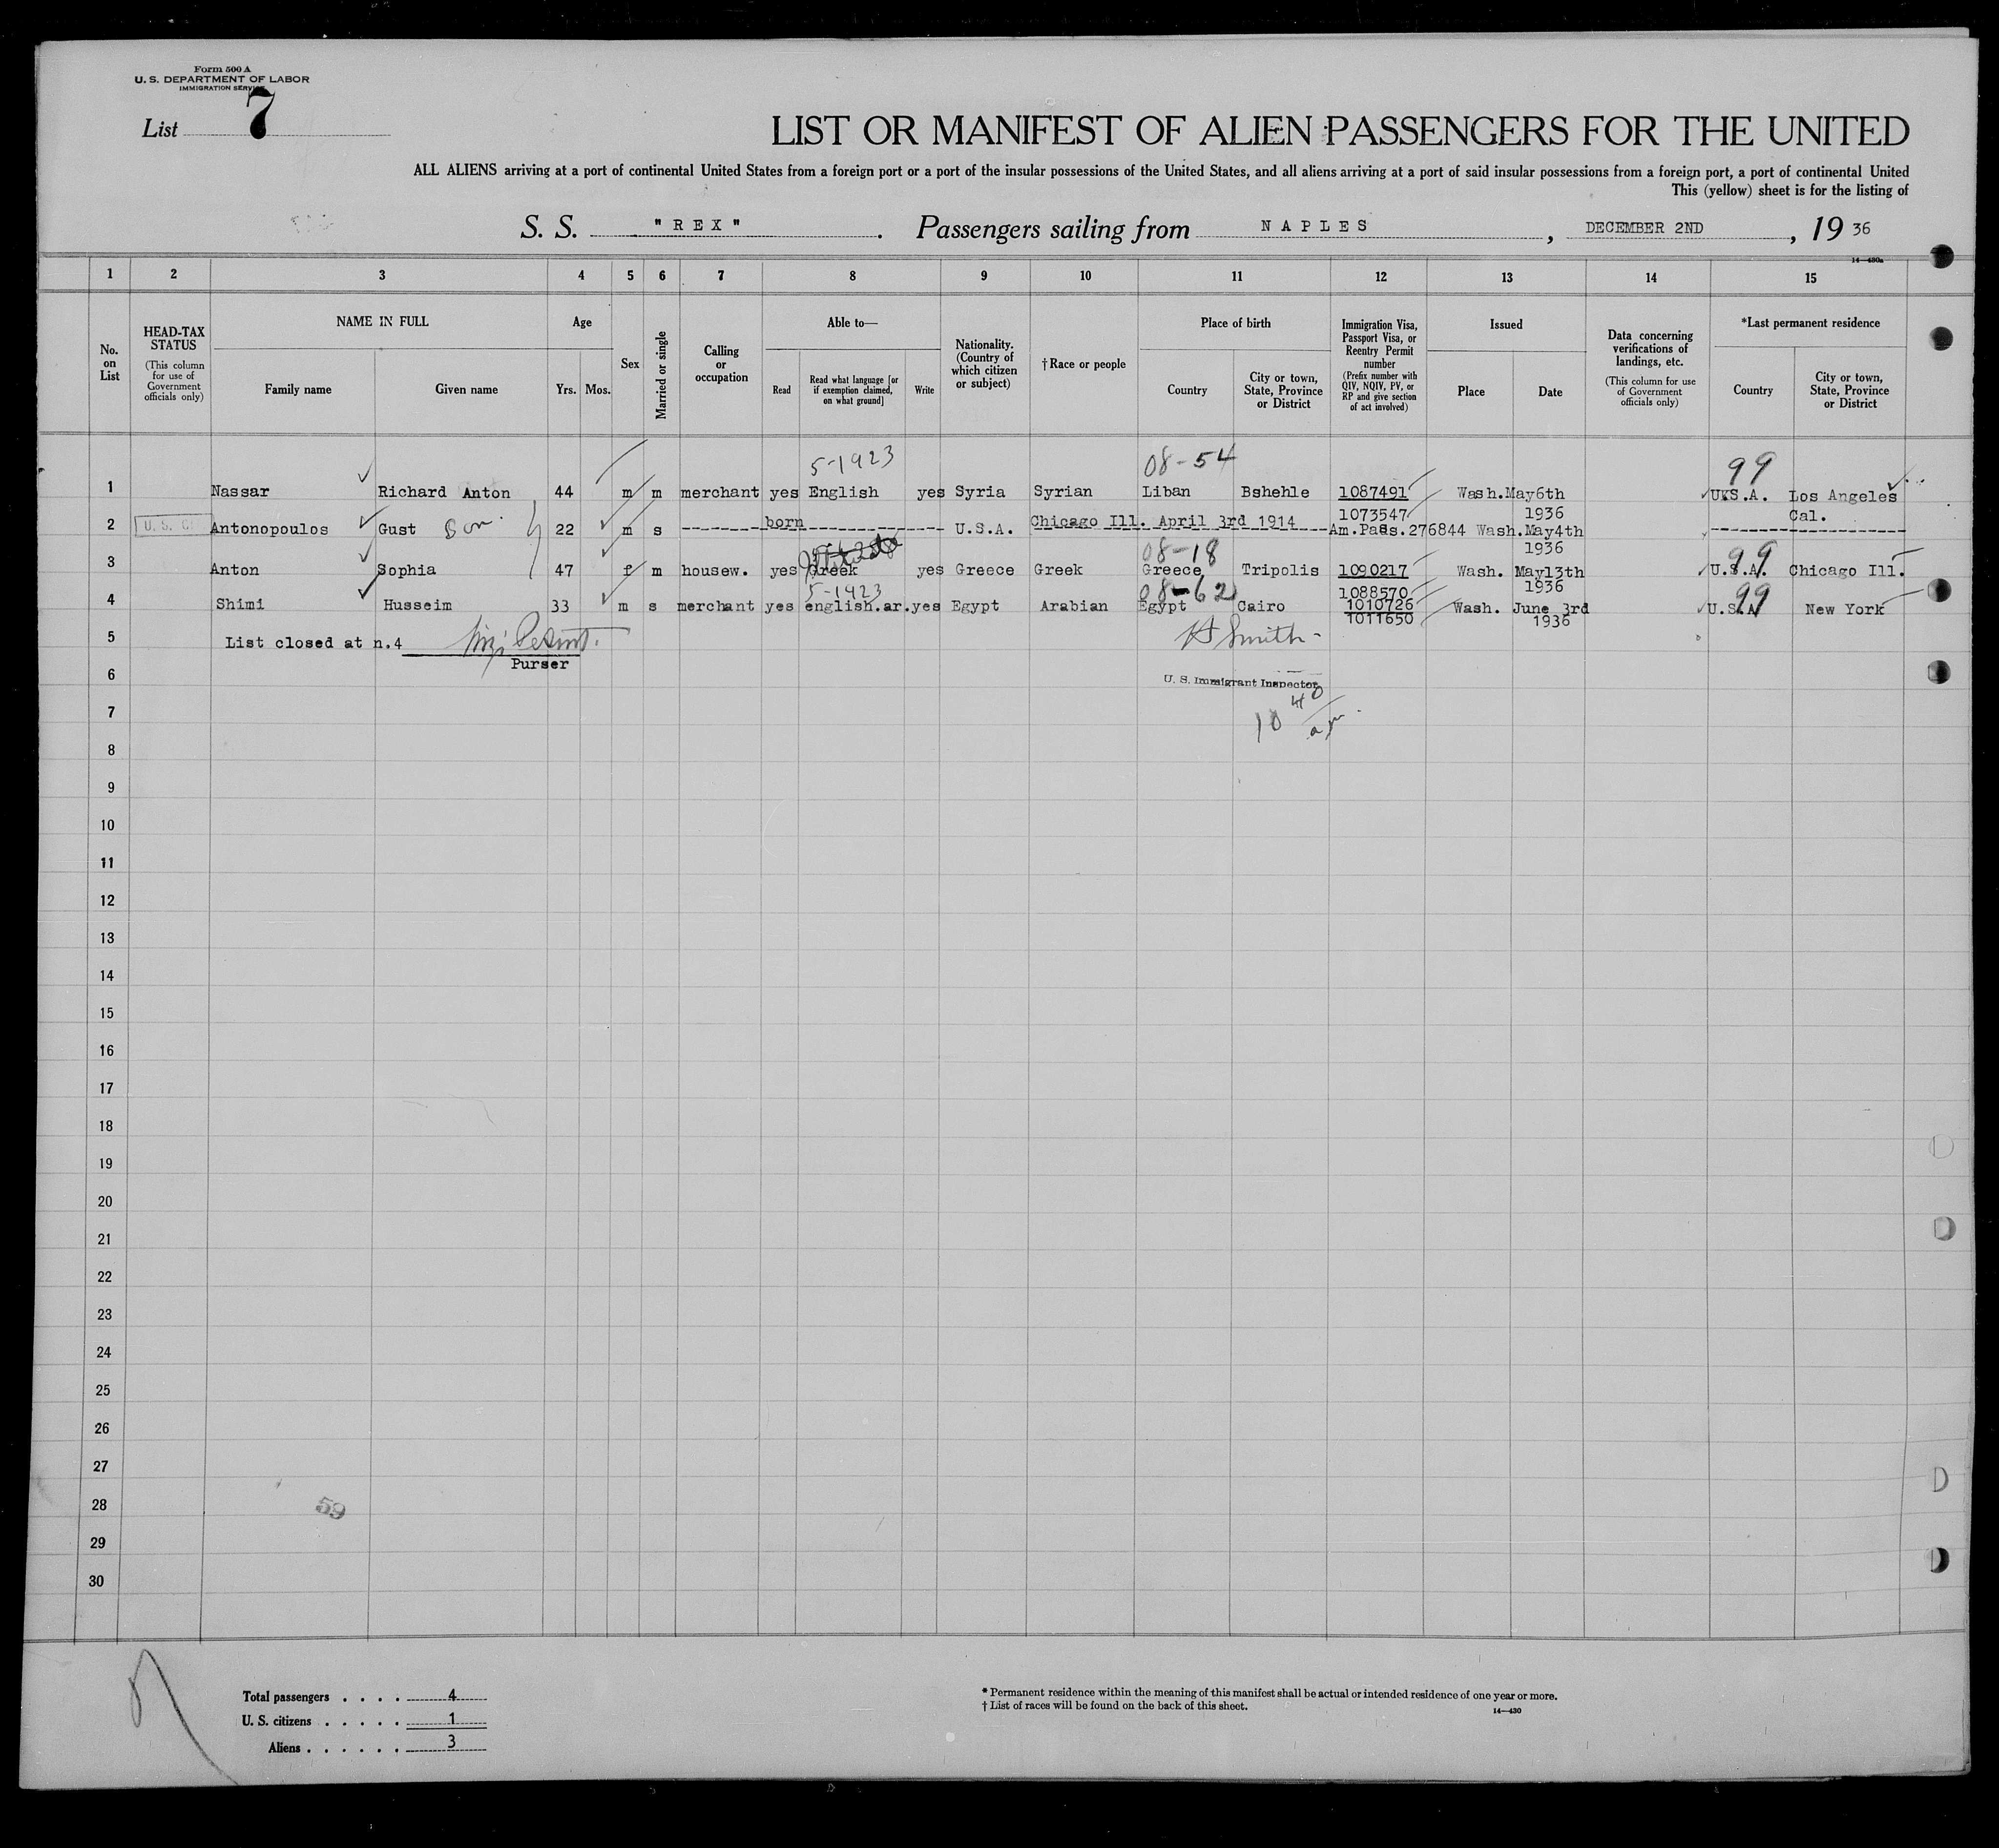 Form 500 A
U. S. DEPARTMENT OF LABOR
IMMIGRATION SERVICE
List 7
LIST OR MANIFEST OF ALIEN PASSENGERS FOR THE UNITED
ALL ALIENS arriving at a port of continental United States from a foreign port or a port of the insular possessions of the United States, and all aliens arriving at a port of said insular possessions from a foreign port, a port of continental United
This (yellow) sheet is for the listing of
S. S. "REX". Passengers sailing from NAPLES, DECEMBER 2ND, 19 36
14—430a
1 2 3 4 5 6 7 8 9 10 11 12 13 14 15
No. on List
HEAD-TAX STATUS
(This column for use of Government officials only)
NAME IN FULL
Family name
Given name
Age
Yrs.
Mos.
Sex
Married or single
Calling or occupation
Able to—
Read
Read what language [or if exemption claimed, on what ground]
Write
Nationality. (Country of which citizen or subject)
†Race or people
Place of birth
Country
City or town, State, Province or District
Immigration Visa, Passport Visa, or Reentry Permit number
(Prefix number with QIV, NQIV, PV, or RP and give section of act involved)
Issued
Place
Date
Data concerning verifications of landings, etc.
(This column for use of Government officials only)
*Last permanent residence
Country
City or town, State, Province or District
5-1923 08-54 99
1 Nassar Richard Anton 44 m m merchant yes English yes Syria Syrian Liban Bshehle 1087491 Wash. May6th U.S.A. Los Angeles
1073547 1936 Cal.
2 U. S. C. Antonopoulos Gust son 22 m s born U.S.A. Chicago Ill. April 3rd 1914 Am.Pass.276844 Wash. May4th
08-18 1936 99
3 Anton Sophia 47 f m housew. yes Greek yes Greece Greek Greece Tripolis 1090217 Wash. May13th U.S.A. Chicago Ill.
5-1923 08-62 1088570 1936 99
4 Shimi Husseim 33 m s merchant yes english.ar. yes Egypt Arabian Egypt Cairo 1010726 Wash. June 3rd U.S.A. New York
1011650 1936
5 List closed at n.4 H Smith
Purser
6 U. S. Immigrant Inspector
7 10 40 am
8
9
10
11
12
13
14
15
16
17
18
19
20
21
22
23
24
25
26
27
28 59
29
30
Total passengers . . . . 4
U. S. citizens . . . . . 1
Aliens . . . . . . 3
* Permanent residence within the meaning of this manifest shall be actual or intended residence of one year or more.
† List of races will be found on the back of this sheet.
14—430